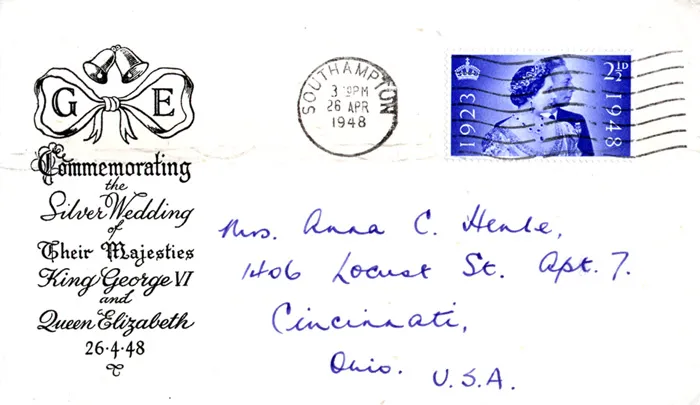 G E
Commemorating
the
Silver Wedding
of
Their Majesties
King George VI
and
Queen Elizabeth
26·4·48
SOUTHAMPTON
26 APR
1948
1923
2½D
1948
Mrs. Anna C. Henle,
1406 Locust St. Apt. 7.
Cincinnati,
Ohio. U.S.A.